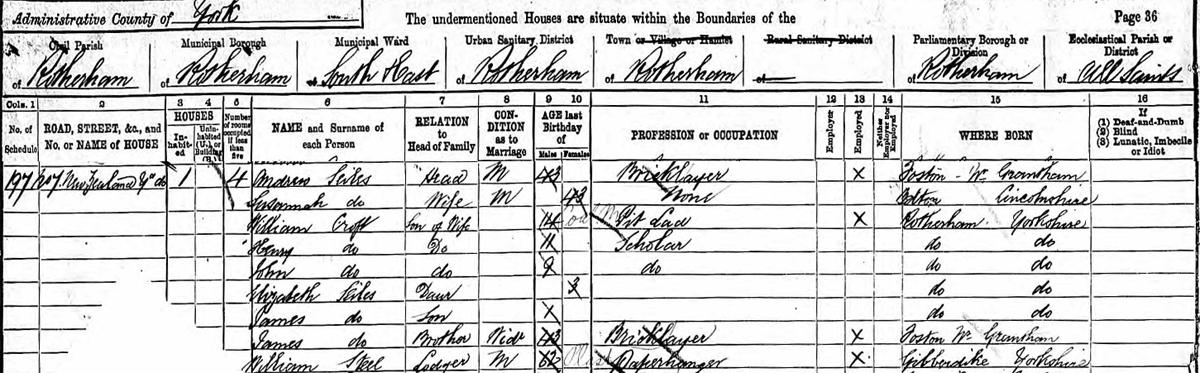 Administrative County of York The undermentioned Houses are situate within the Boundaries of the Page 36
Civil Parish Municipal Borough Municipal Ward Urban Sanitary District Town or Village or Hamlet Rural Sanitary District Parliamentary Borough or Division Ecclesiastical Parish or District
of Rotherham of Rotherham of South East of Rotherham of Rotherham of of Rotherham of All Saints
Cols. 1 2 3 4 5 6 7 8 9 10 11 12 13 14 15 16
No. of Schedule ROAD, STREET, &c., and No. or NAME of HOUSE HOUSES Inhabited Uninhabited (U.), or Building (B.) Number of rooms occupied if less than five NAME and Surname of each Person RELATION to Head of Family CONDITION as to Marriage AGE last Birthday of Males Females PROFESSION or OCCUPATION Employer Employed Neither Employer nor Employed WHERE BORN If (1) Deaf-and-Dumb (2) Blind (3) Lunatic, Imbecile or Idiot
197 New Zealand do 1 4 Andrew Head M 43 Bricklayer X Foston Nr Grantham
Susannah do Wife M 43 None Lincolnshire
William Croft Son of Wife 14 Pit Lad X Rotherham Yorkshire
Henry do Do 11 Scholar do do
John do do 9 do do do
Elizabeth Daur 3 do do
James do Son do do
James do Brother Widr 43 Bricklayer X Foston Nr Grantham
William Steel Lodger M 62 Paperhanger X Gibberdike Yorkshire